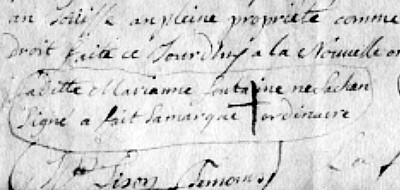 an Jouisse an pleine propriété comme
droit faite ce Jourdhuy a la Nouvelle or
Laditte Marianne fontaine ne Sachan
Signe a fait Samarque + ordinaire
Temoins